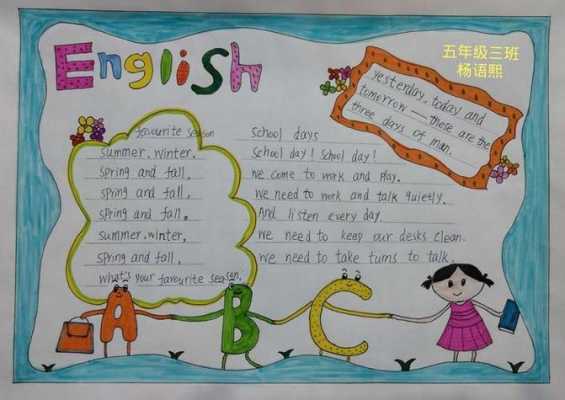 English
五年级三班
杨语熙
Yesterday, today and
tomorrow — these are the
three days of man.
favourite season
summer, winter.
spring and fall,
spring and fall,
spring and fall。
summer, winter,
spring and fall,
what's your favourite season.
school days
School day! School day!
we come to work and play.
we need to work and talk quietly.
And listen every day
we need to keep our desks clean.
we need to take turns to talk.
A B C